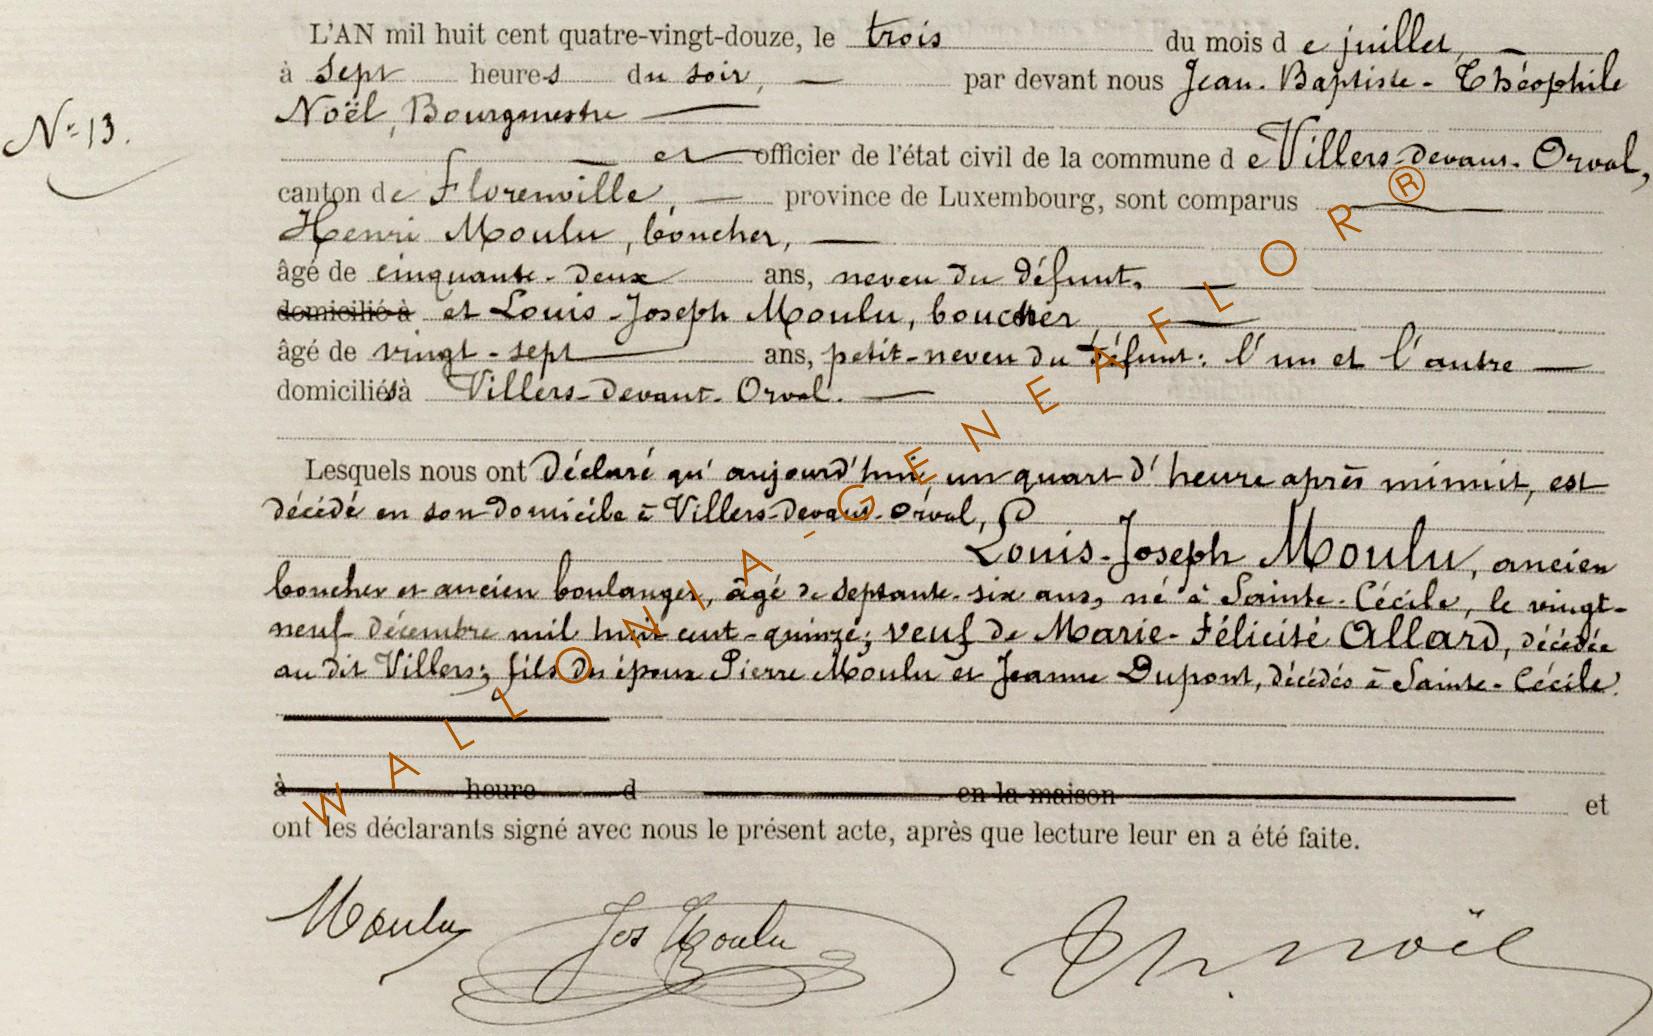 L'AN mil huit cent quatre-vingt-douze, le trois du mois de juillet,
à sept heures du soir, par devant nous Jean-Baptiste-Théophile
Noël, Bourgmestre
N° 13.
et officier de l'état civil de la commune de Villers-devant-Orval,
canton de Florenville, province de Luxembourg, sont comparus
Henri Moulu, boucher,
âgé de cinquante-deux ans, neveu du défunt,
domicilié à et Louis-Joseph Moulu, boucher
âgé de vingt-sept ans, petit-neveu du défunt: l'un et l'autre
domiciliés à Villers-devant-Orval.
Lesquels nous ont déclaré qu'aujourd'hui, un quart d'heure après minuit, est
décédé en son domicile à Villers-devant-Orval,
Louis-Joseph Moulu, ancien
boucher et ancien boulanger, âgé de septante-six ans, né à Sainte-Cécile, le vingt-
neuf décembre mil huit cent-quinze; veuf de Marie-Félicité Allard, décédée
au dit Villers; fils des époux Pierre Moulu et Jeanne Dupont, décédés à Sainte-Cécile.
à heure d en la maison et
ont les déclarants signé avec nous le présent acte, après que lecture leur en a été faite.
Moulu Jos Moulu Th. Noël
WALLONIA-GENEAFLOR®